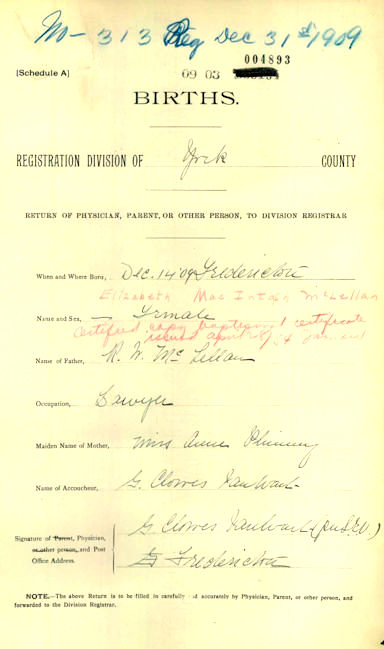 No - 313 Reg Dec 31st 1909
004893
[Schedule A]
09 03
BIRTHS.
REGISTRATION DIVISION OF York COUNTY
RETURN OF PHYSICIAN, PARENT, OR OTHER PERSON, TO DIVISION REGISTRAR
When and Where Born, Dec. 14 '09 Fredericton
Elizabeth MacIntosh McLellan
Name and Sex, — Female
Certified copy baptismal certificate
issued April
Name of Father, R. W. McLellan
Occupation, Lawyer
Maiden Name of Mother, Miss Anne Phinney
Name of Accoucheur, G. Clowes VanWart
G. Clowes VanWart
Signature of Parent, Physician,
or other person, and Post
Office Address.
Fredericton
NOTE.—The above Return is to be filled in carefully and accurately by Physician, Parent, or other person, and
forwarded to the Division Registrar.